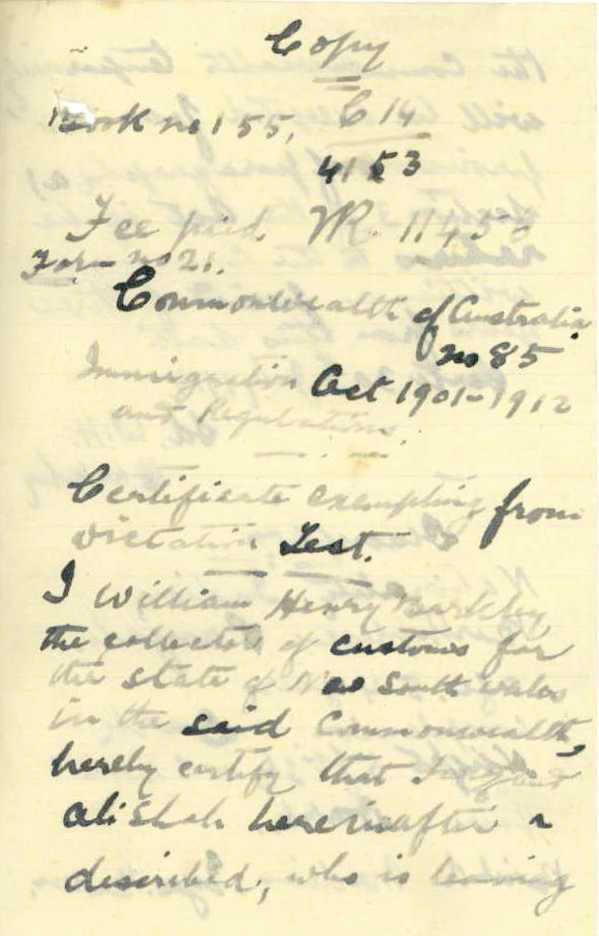 Copy
Book no 155, C 14
4153
Fee paid
Form no 21.
Commonwealth of Australia
no 85
Immigration Act 1901-1912
and Regulations.
Certificate exempting from
Dictation Test.
I William Henry Barkley
the collector of customs for
the state of New South wales
in the said Commonwealth,
hereby certify that
ali Shah hereinafter
described, who is leaving